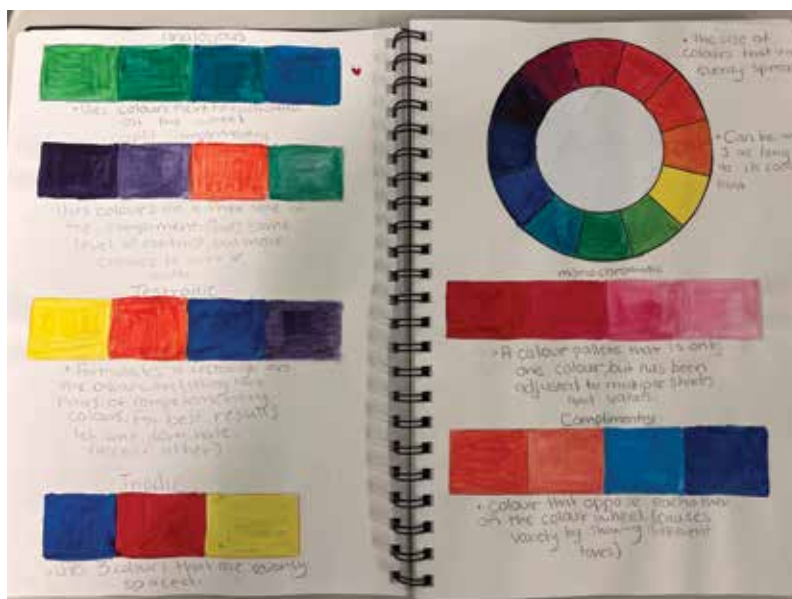 analogous
• Uses colours next to
on the wheel
split complimentary
Uses colours on either side of
the compliment. Gives same
level of contrast, but more
colours to work
with
Tetradic
• a rectangle on
the colour
pairs of complementary
colours. For best results
let one dominate
Triadic
• Uses 3 colours that are evenly
spaced.
• the use of
colours that
evenly
• Can be
3 as long
as its
monochromatic
• A colour pallete that is only
one colour, but has been
adjusted to multiple
and values.
Complimentary
• colour that oppose eachother
on the colour wheel (causes
variety by showing different
tones)